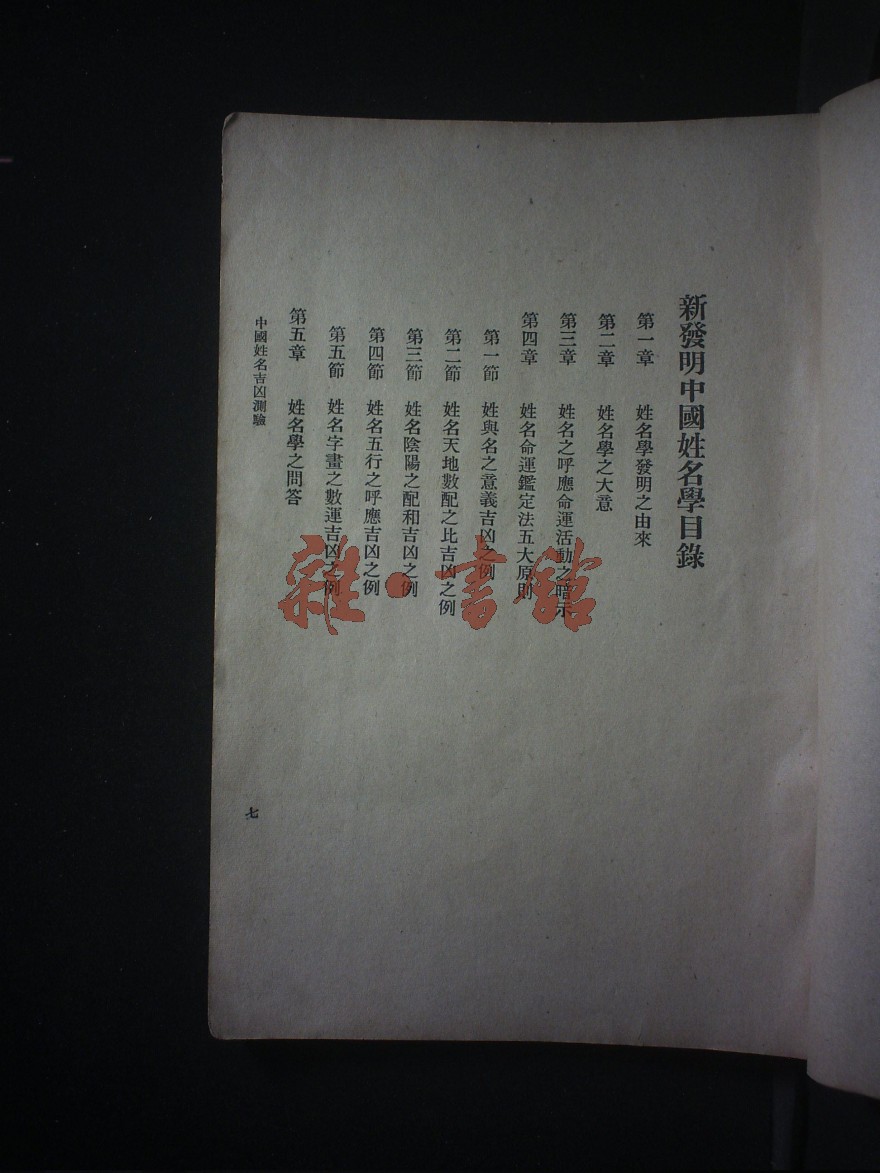 新發明中國姓名學目錄
第一章 姓名學發明之由來
第二章 姓名學之大意
第三章 姓名之呼應命運活動之暗示
第四章 姓名命運鑑定法五大原則
第一節 姓與名之意義吉凶之例
第二節 姓名天地數配之比吉凶之例
第三節 姓名陰陽之配和吉凶之例
第四節 姓名五行之呼應吉凶之例
第五節 姓名字畫之數運吉凶之例
第五章 姓名學之問答
中國姓名吉凶測驗
七
雜·書館